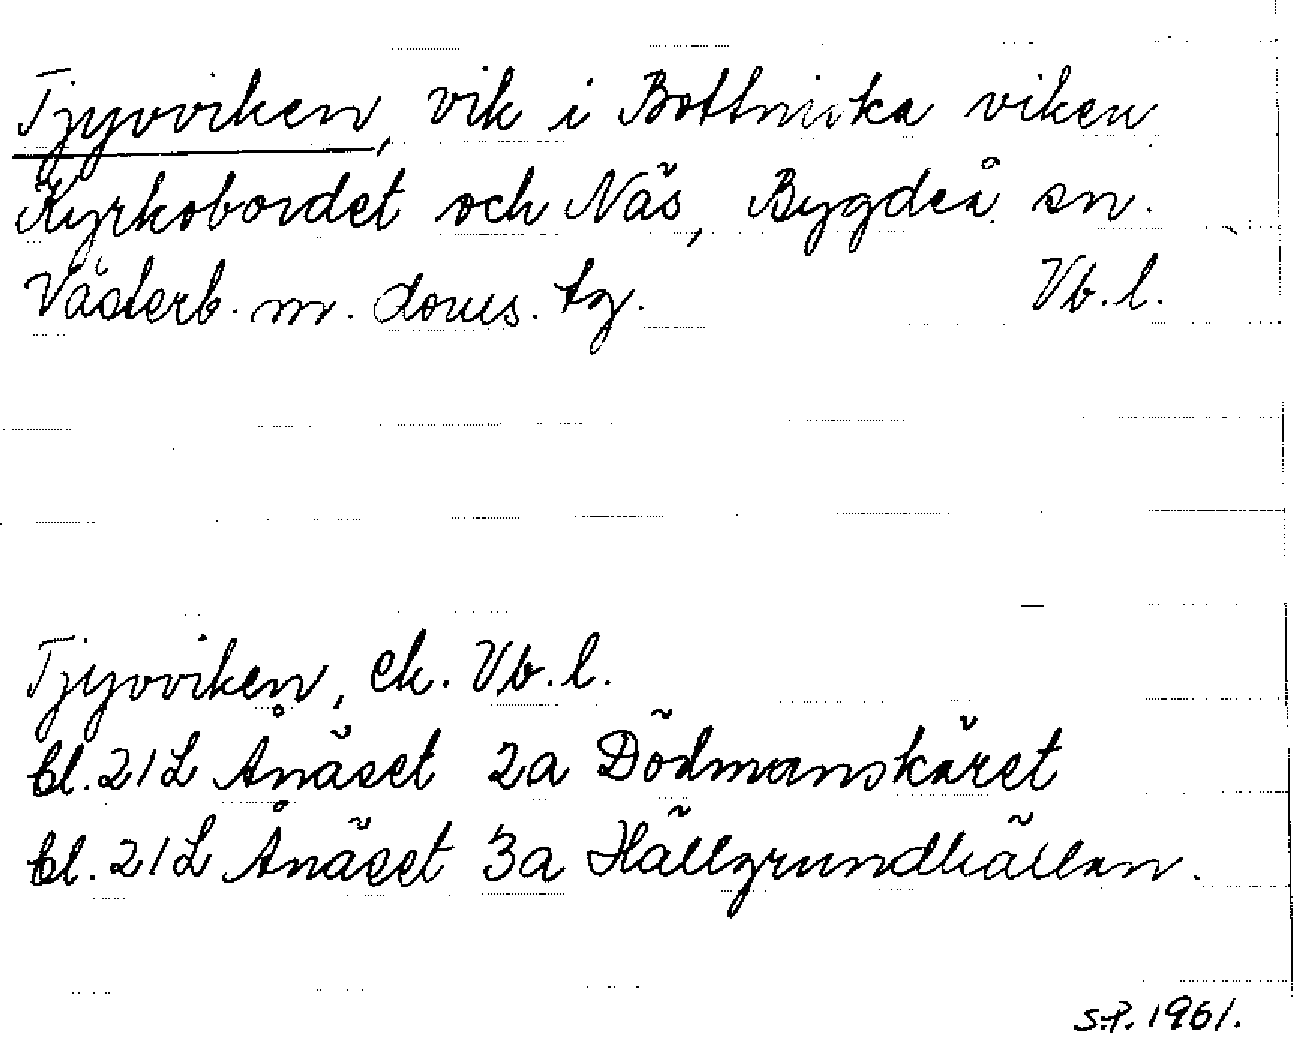 Tjyvviken, vik i Bottniska viken
Kyrkobordet och Näs, Bygdeå sn.
Västerb. m. doms. tg. Vb. l.
Tjyvviken, ek. Vb. l.
bl. 21L Ånäset 2a Dödmanskäret
bl. 21L Ånäset 3a Hällgrundhällan.
S.P. 1961.